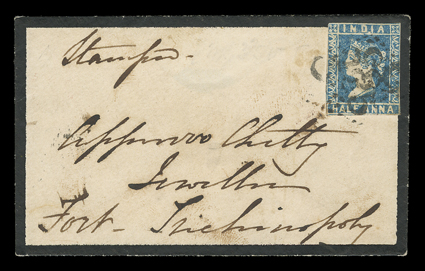 Stamped
INDIA
HALF ANNA
Appavoo Chetty
Jeweller
Fort - Trichinopoly